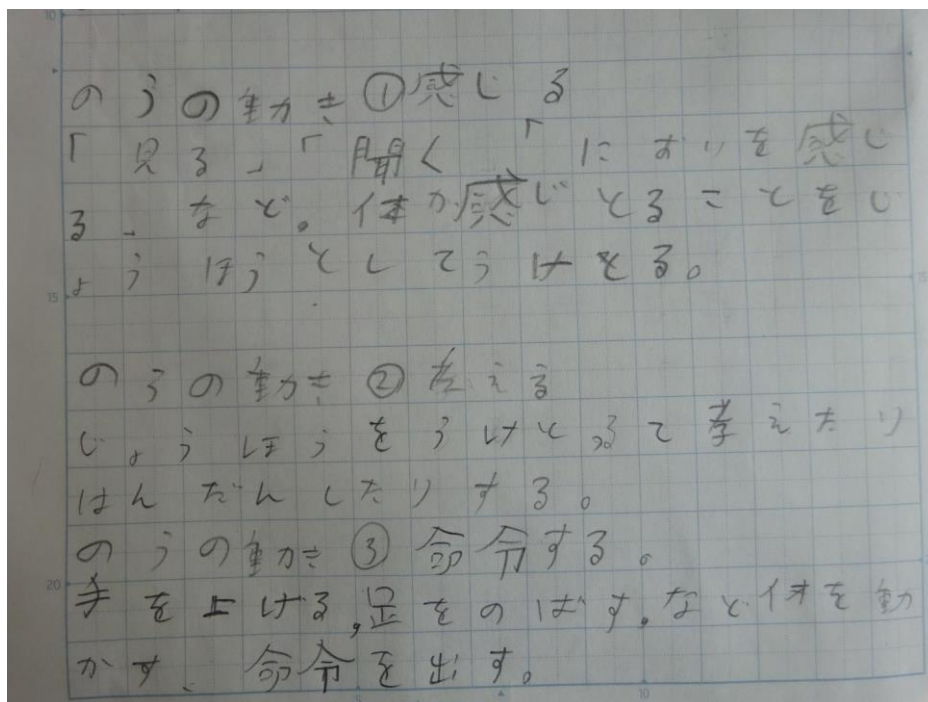 のうの動き ①感じる
「見る」「聞く「においを感じ
る、など。体が感じとることをじ
ょうほうとしてうけとる。
のうの動き ②考える
じょうほうをうけとって考えたり
はんだんしたりする。
のうの動き ③ 命令する。
手を上げる,足をのばす.など体を動
かす、命令を出す。